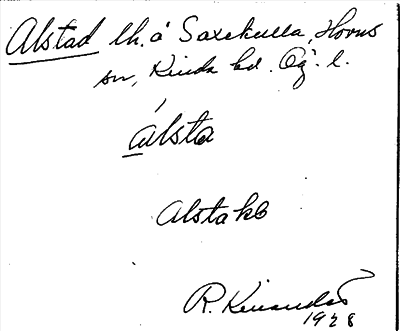 Alstad lh. å Saxekulla, Horns
sn, Kinda hd. Ög. l.
álsta
Alstakb
R.
1928